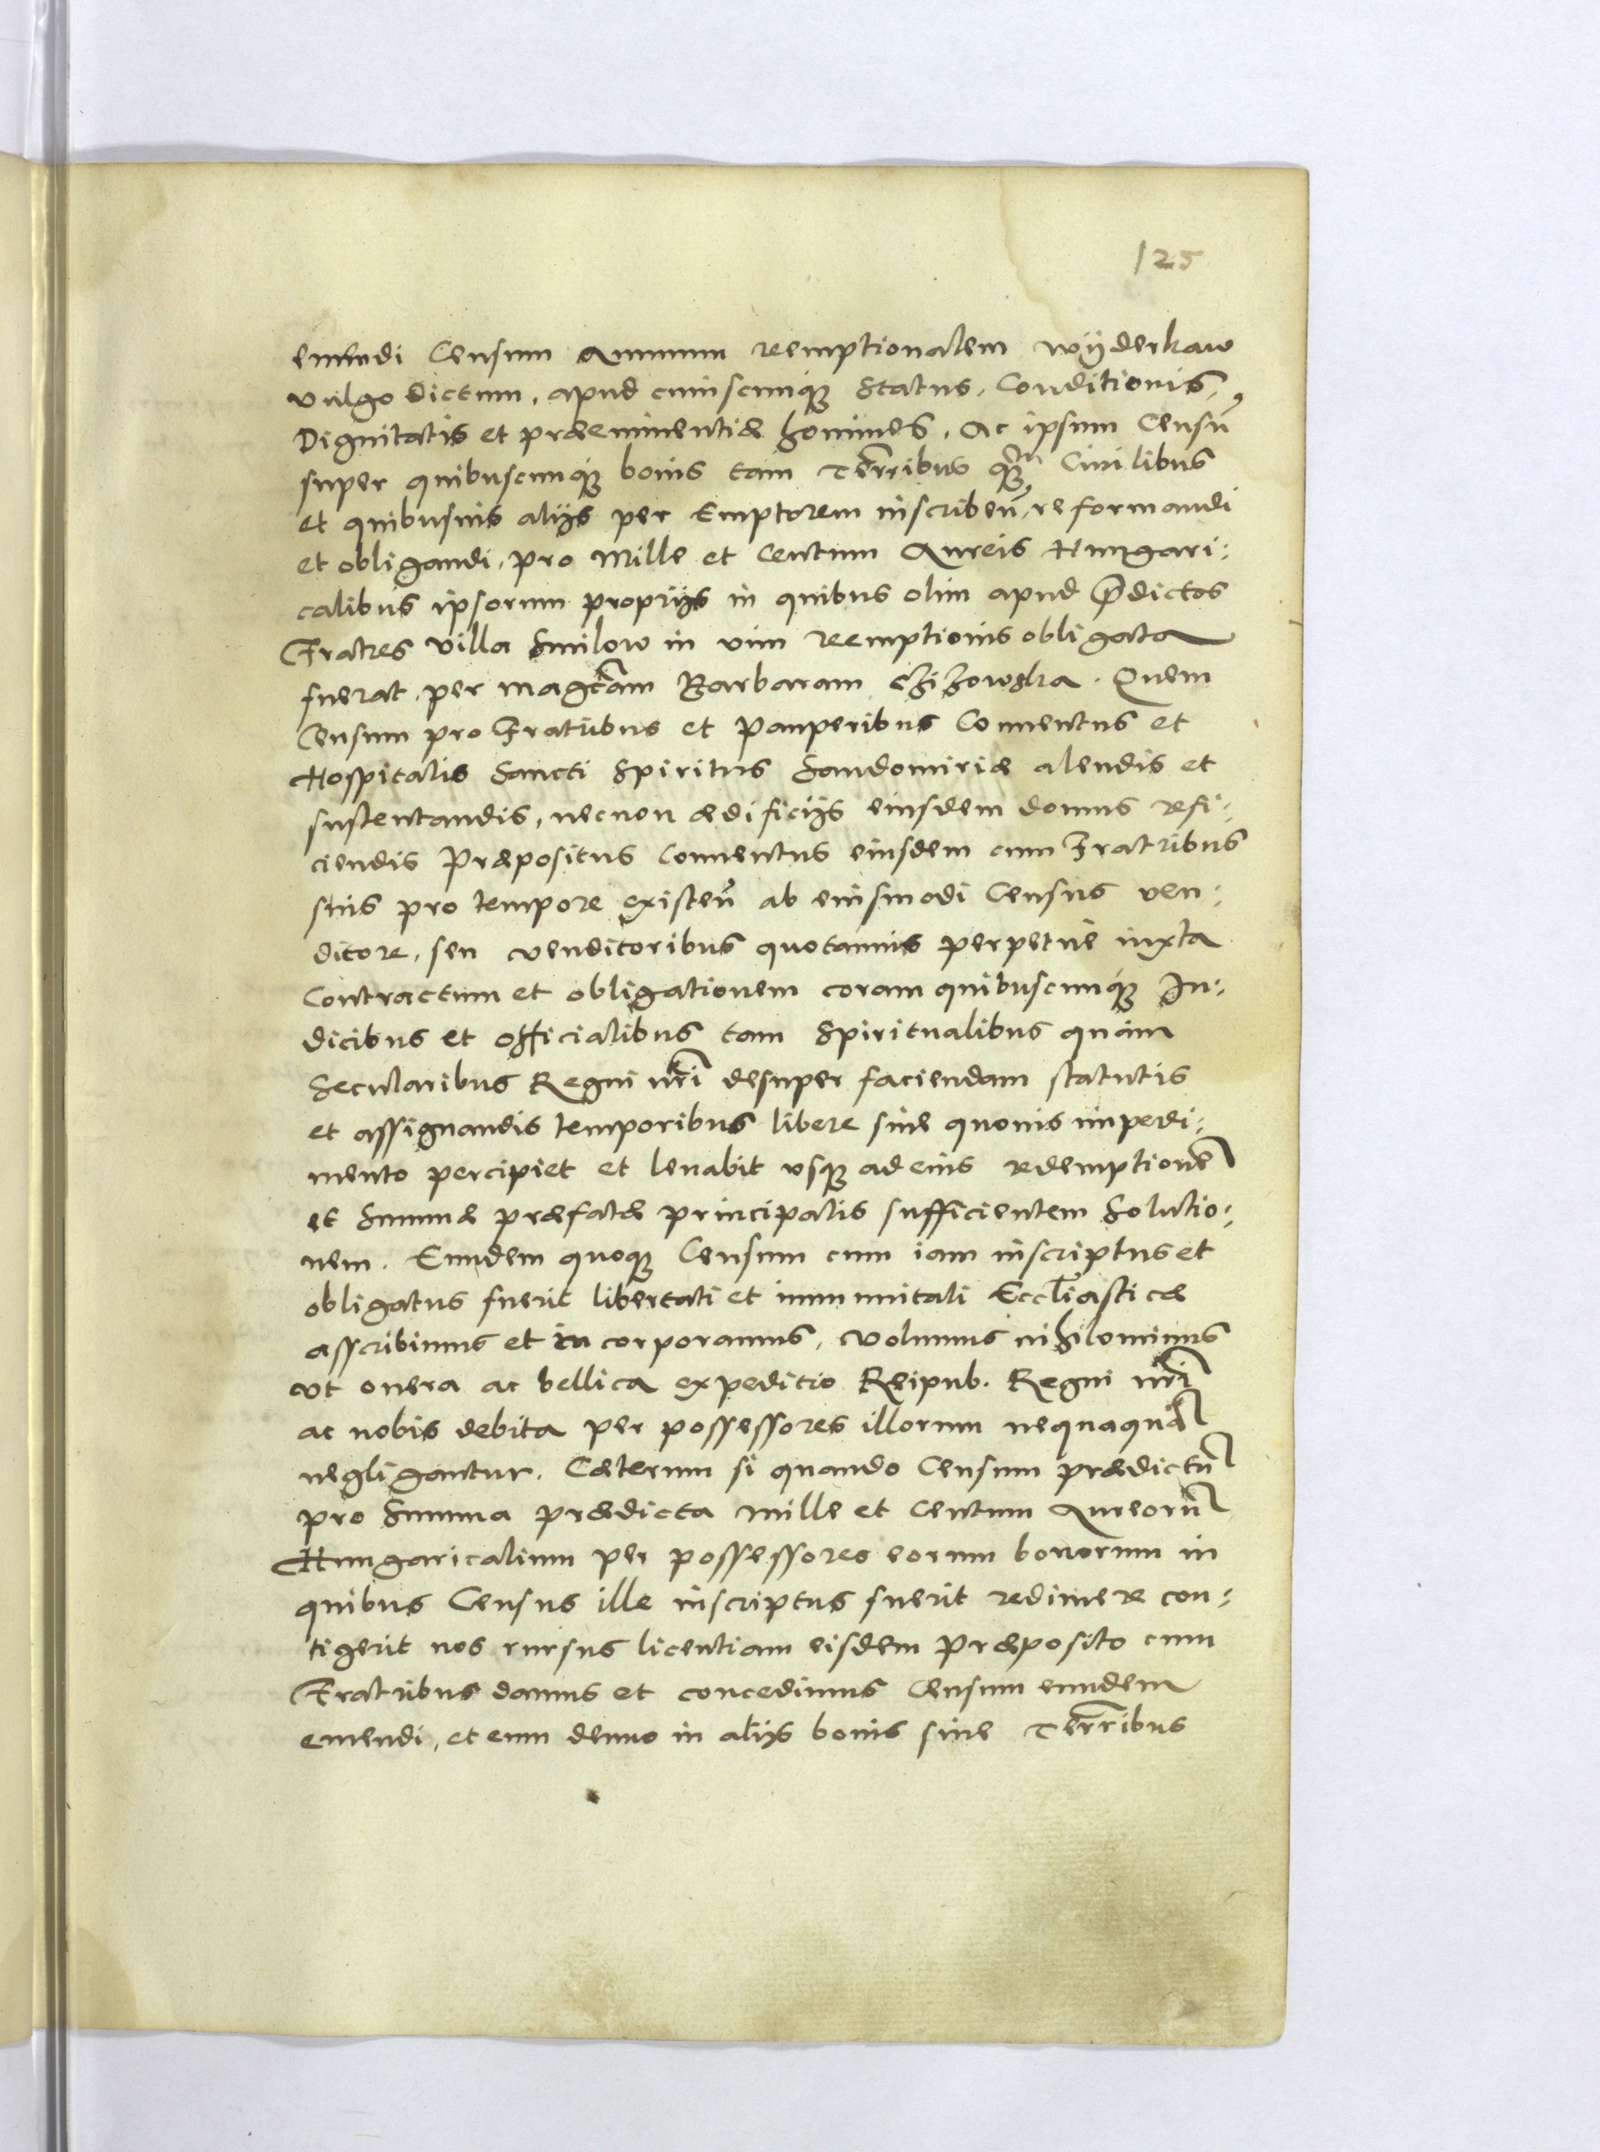 125
emendi Censum Annuum reemptionalem wÿderkaw
vulgo dictum, apud cuiuscunq3 status, Conditionis,
Dignitatis et præeminentiæ homines. Ac ipsum Censũ
super quibuscunq3 bonis tam Terr̃ribus q̃ Ciuilibus
et quibusuis alijs per Emptorem inscribeñ, reformandi
et obligandi, pro Mille et Centum Aureis Hungari:
calibus ipsorum proprijs in quibus olim apud p̃dictos
Fratres villa Smilow in vim reemptionis obligata
fuerat, per mag̃cam Barbaram Chihowska. Quem
Censum pro Fratribus et Pauperibus Conuentus et
Hospitalis Sancti Spiritus Sandomiriæ alendis et
sustentandis, necnon ædificijs eiusdem domus refi:
ciendis Præpositus Conuentus eiusdem cum Fratribus
suis pro tempore existeñ ab eiusmodi Census ven:
ditore, seu venditoribus quotannis perpetue iuxta
Contractum et obligationem coram quibuscunq3 Iu:
dicibus et officialibus tam Spiritualibus quàm
Secularibus Regni nr̃i desuper faciendam statutis
et assignandis temporibus libere sine quouis impedi:
mento percipiet et leuabit vsq3 ad eius redemptionẽ
et Summæ præfatæ principalis sufficientem Solutio:
nem. Eundem quoq3 Censum cum iam inscriptus et
obligatus fuerit libertati et immunitati Eccl̃iasticæ
asscribimus et incorporamus, volumus nihilominus
vt onera ac bellica expeditio Reipub. Regni nr̃i
ac nobis debita per possessores illorum nequaquã
negligantur. Cæterum si quando Censum prædictũ
pro Summa prædicta mille et Centum Aureorũ
Hungaricalium per possessores eorum bonorum in
quibus Census ille inscriptus fuerit redimere con:
tigerit nos rursus licentiam eisdem Præposito cum
Fratribus damus et concedimus Censum eundem
emendi, et eum denuo in alijs bonis siue Terr̃ribus